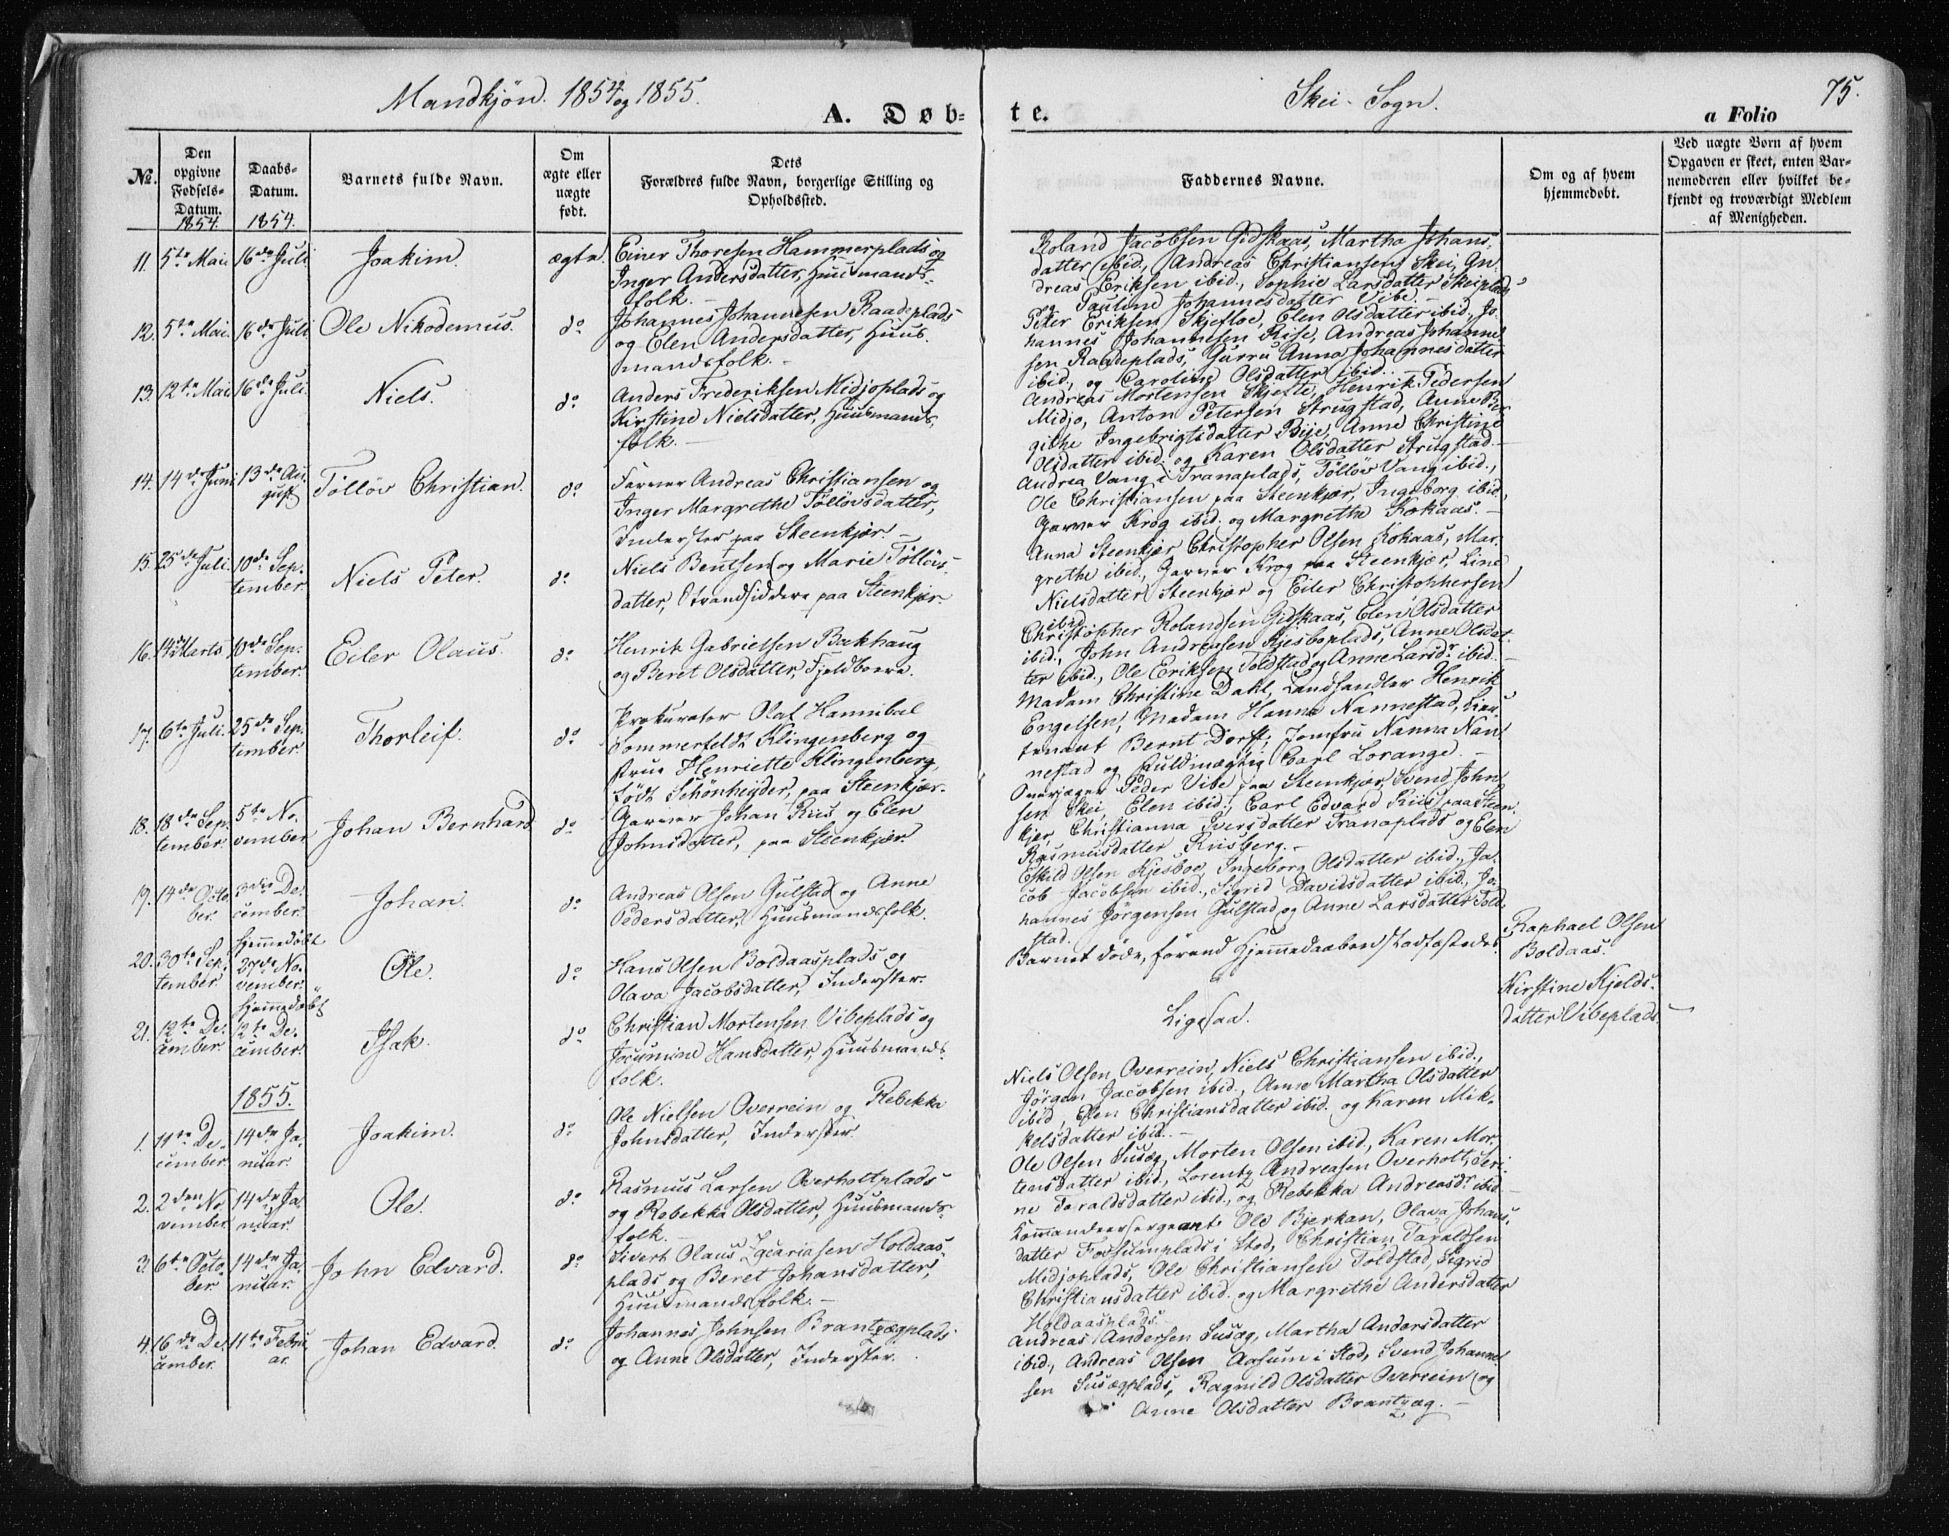 Mandkjøn. 1854 og 1855.
Skei Sogn.
75.
A. Døb-
te.
a Folio
No.
Den opgivne Fødsels-Datum.
1854.
Daabs-Datum.
1854.
Barnets fulde Navn.
Om ægte eller uægte født.
Dets
Forældres fulde Navn, borgerlige Stilling og
Opholdssted.
Faddernes Navne.
Om og af hvem
hjemmedøbt.
Ved uægte Børn af hvem
Opgaven er skeet, enten Bar-
nemoderen eller hvilket be-
kjendt og troværdigt Medlem
af Menigheden.
11. 5te Mai 16de Juli Joakim. ægte.
Einer Thoresen Hammerplads og
Inger Andersdatter, Huusmands-
folk.
Roland Jacobsen Gidskaas, Martha Johans-
datter ibid., Andreas Christiansen Skei, An-
dreas Eriksen ibid., Sophie Larsdatter Skeiplads
og Pauline Johannesdatter Vibe.
12. 5te Mai 16de Juli Ole Nikodemus. do
Johannes Johannesen Raadeplads
og Elen Andersdatter, Huus-
mandsfolk.
Peter Eriksen Skjefloe, Elen Olsdatter ibid., Jo-
hannes Johannesen Rise, Andreas Johanne-
sen Raadeplads, Gurru Anna Johannesdatter
ibid., og Caroline Olsdatter ibid.
13. 12te Mai 16de Juli. Niels. do
Anders Frederiksen Midjoplads og
Kirstine Nielsdatter, Huusmands-
folk.
Andreas Mortensen Skjefte, Henrik Pedersen
Midjo, Anton Petersen Strugstad, Anne Bir-
githe Ingebrigtsdatter Bije, Anne Christine
Olsdatter ibid. og Karen Olsdatter Strugstad.
14. 14de Juni 13de Au-
gust Tøllöv Christian. do
Farver Andreas Christiansen og
Inger Margrethe Tøllövsdatter,
Inderster paa Steenkjær.
Andrea Vang i Tranaplads, Tøllöv Vang ibid.,
Ole Christiansen paa Steenkjær, Ingeborg ibid.,
Garver Krog ibid. og Margrethe Kokaas.
15. 25de Juli. 10de Sep-
tember. Niels Peter. do
Niels Bentsen og Marie Tøllövs-
datter, Strandsiddere paa Steenkjær.
Anna Steenkjær, Christopher Olsen Kokaas, Mar-
grethe ibid., Garver Krog paa Steenkjær, Line
Nielsdatter Steenkjær og Eiler Christophersen
ibid.
16. 14de Marts 10de Sep-
tember. Eiler Olaus. do
Henrik Gabrielsen Bakhaug
og Beret Olsdatter, Fjeldboere.
Christopher Rolandsen Gidskaas, Elen Olsdatter
ibid., John Andreasen Kjesboplads, Anne Olsdat-
ter ibid., Ole Eriksen Toldstad og Anne Larsdr. ibid.
17. 6te Juli. 25de Sep-
tember. Thorleif. do
Prokurator Olaf Hannibal
Sommerfeldt Klingenberg og
Frue Henriette Klingenberg,
født Schönheyder, paa Steenkjær.
Madam Christine Dahl, Landhandler Henrik
Engelsen, Madam Hanna Nannestad, Lieu-
tenant Bernt Dorff, Jomfru Nanna Nan-
nestad og Fuldmægtig Carl Lorange.
18. 18de Sep-
tember 5te No-
vember Johan Bernhard. do
Garver Johan Riis og Elen
Johnsdatter, paa Steenkjær.
Overjæger Peder Vibe paa Steenkjær, Svend John-
sen Skei, Elen ibid., Carl Edvard Riis paa Steen-
kjær, Christianna Iversdatter Tranaplads og Elen
Rasmusdatter Rusberg.
19. 14de Octo-
ber. 3die De-
cember. Johan. do
Andreas Olsen Gulstad og Anne
Pedersdatter, Huusmandsfolk.
Eskild Olsen Kjesboe, Ingeborg Olsdatter ibid., Ja-
cob Jacobsen ibid., Sigrid Davidsdatter ibid., Jo-
hannes Jörgensen Gulstad og Anne Larsdatter Told-
stad.
20. 30te Sep-
tember Hjemmedøbt
27de No-
vember. Ole. do
Hans Olsen Boldaasplads og
Olava Jacobsdatter, Inderster.
Barnet døde, førend Hjemmedaaben stadfæstedes.
Raphael Olsen
Boldaas.
21. 12te De-
cember. Hjemmedøbt
12te De-
cember. Isak. do
Christian Mortensen Vibeplads og
Jocumine Hansdatter, Huusmands-
folk.
Ligesaa.
Kirstine Kjelds-
datter Vibeplads.
1855.
1. 11te De-
cember. 14de Ja-
nuar. Joakim. do
Ole Nielsen Overrein og Rebekka
Johnsdatter, Inderster.
Niels Olsen Overrein, Niels Christiansen ibid.,
Jörgen Jacobsen ibid., Anne Martha Olsdatter
ibid., Elen Christiansdatter ibid. og Karen Mik-
kelsdatter ibid.
2. 2den No-
vember 14de Ja-
nuar. Ole. do
Rasmus Larsen Overholtplads
og Rebekka Olsdatter, Huusmands-
folk.
Ole Olsen Susæg, Morten Olsen ibid., Karen Mor-
tensdatter ibid., Lorentz Andreasen Overholt, Seri-
ne Taraldsdatter ibid., og Rebekka Andreasdr. ibid.
3. 6te Octo-
ber. 14de Ja-
nuar. John Edvard. do
Sivert Olaus Zacariasen Holdaas-
plads og Beret Johansdatter,
Huusmandsfolk.
Kommandeersergeant Ole Bjerkan, Olava Johans-
datter Forsumplads i Stod, Christian Taraldsen
Midjoplads, Ole Christiansen Toldstad, Sigrid
Christiansdatter ibid. og Margrethe Andersdatter
Holdaasplads.
4. 16de De-
cember. 11te Febru-
ar. Johan Edvard. do
Johannes Johnsen Brantzægplads
og Anne Olsdatter, Inderster.
Andreas Andersen Susæg, Martha Andersdatter
ibid., Andreas Olsen Aasum i Stod, Svend Johanne-
sen Susægplads, Ragnild Olsdatter Overrein og
Anne Olsdatter Brantzæg.